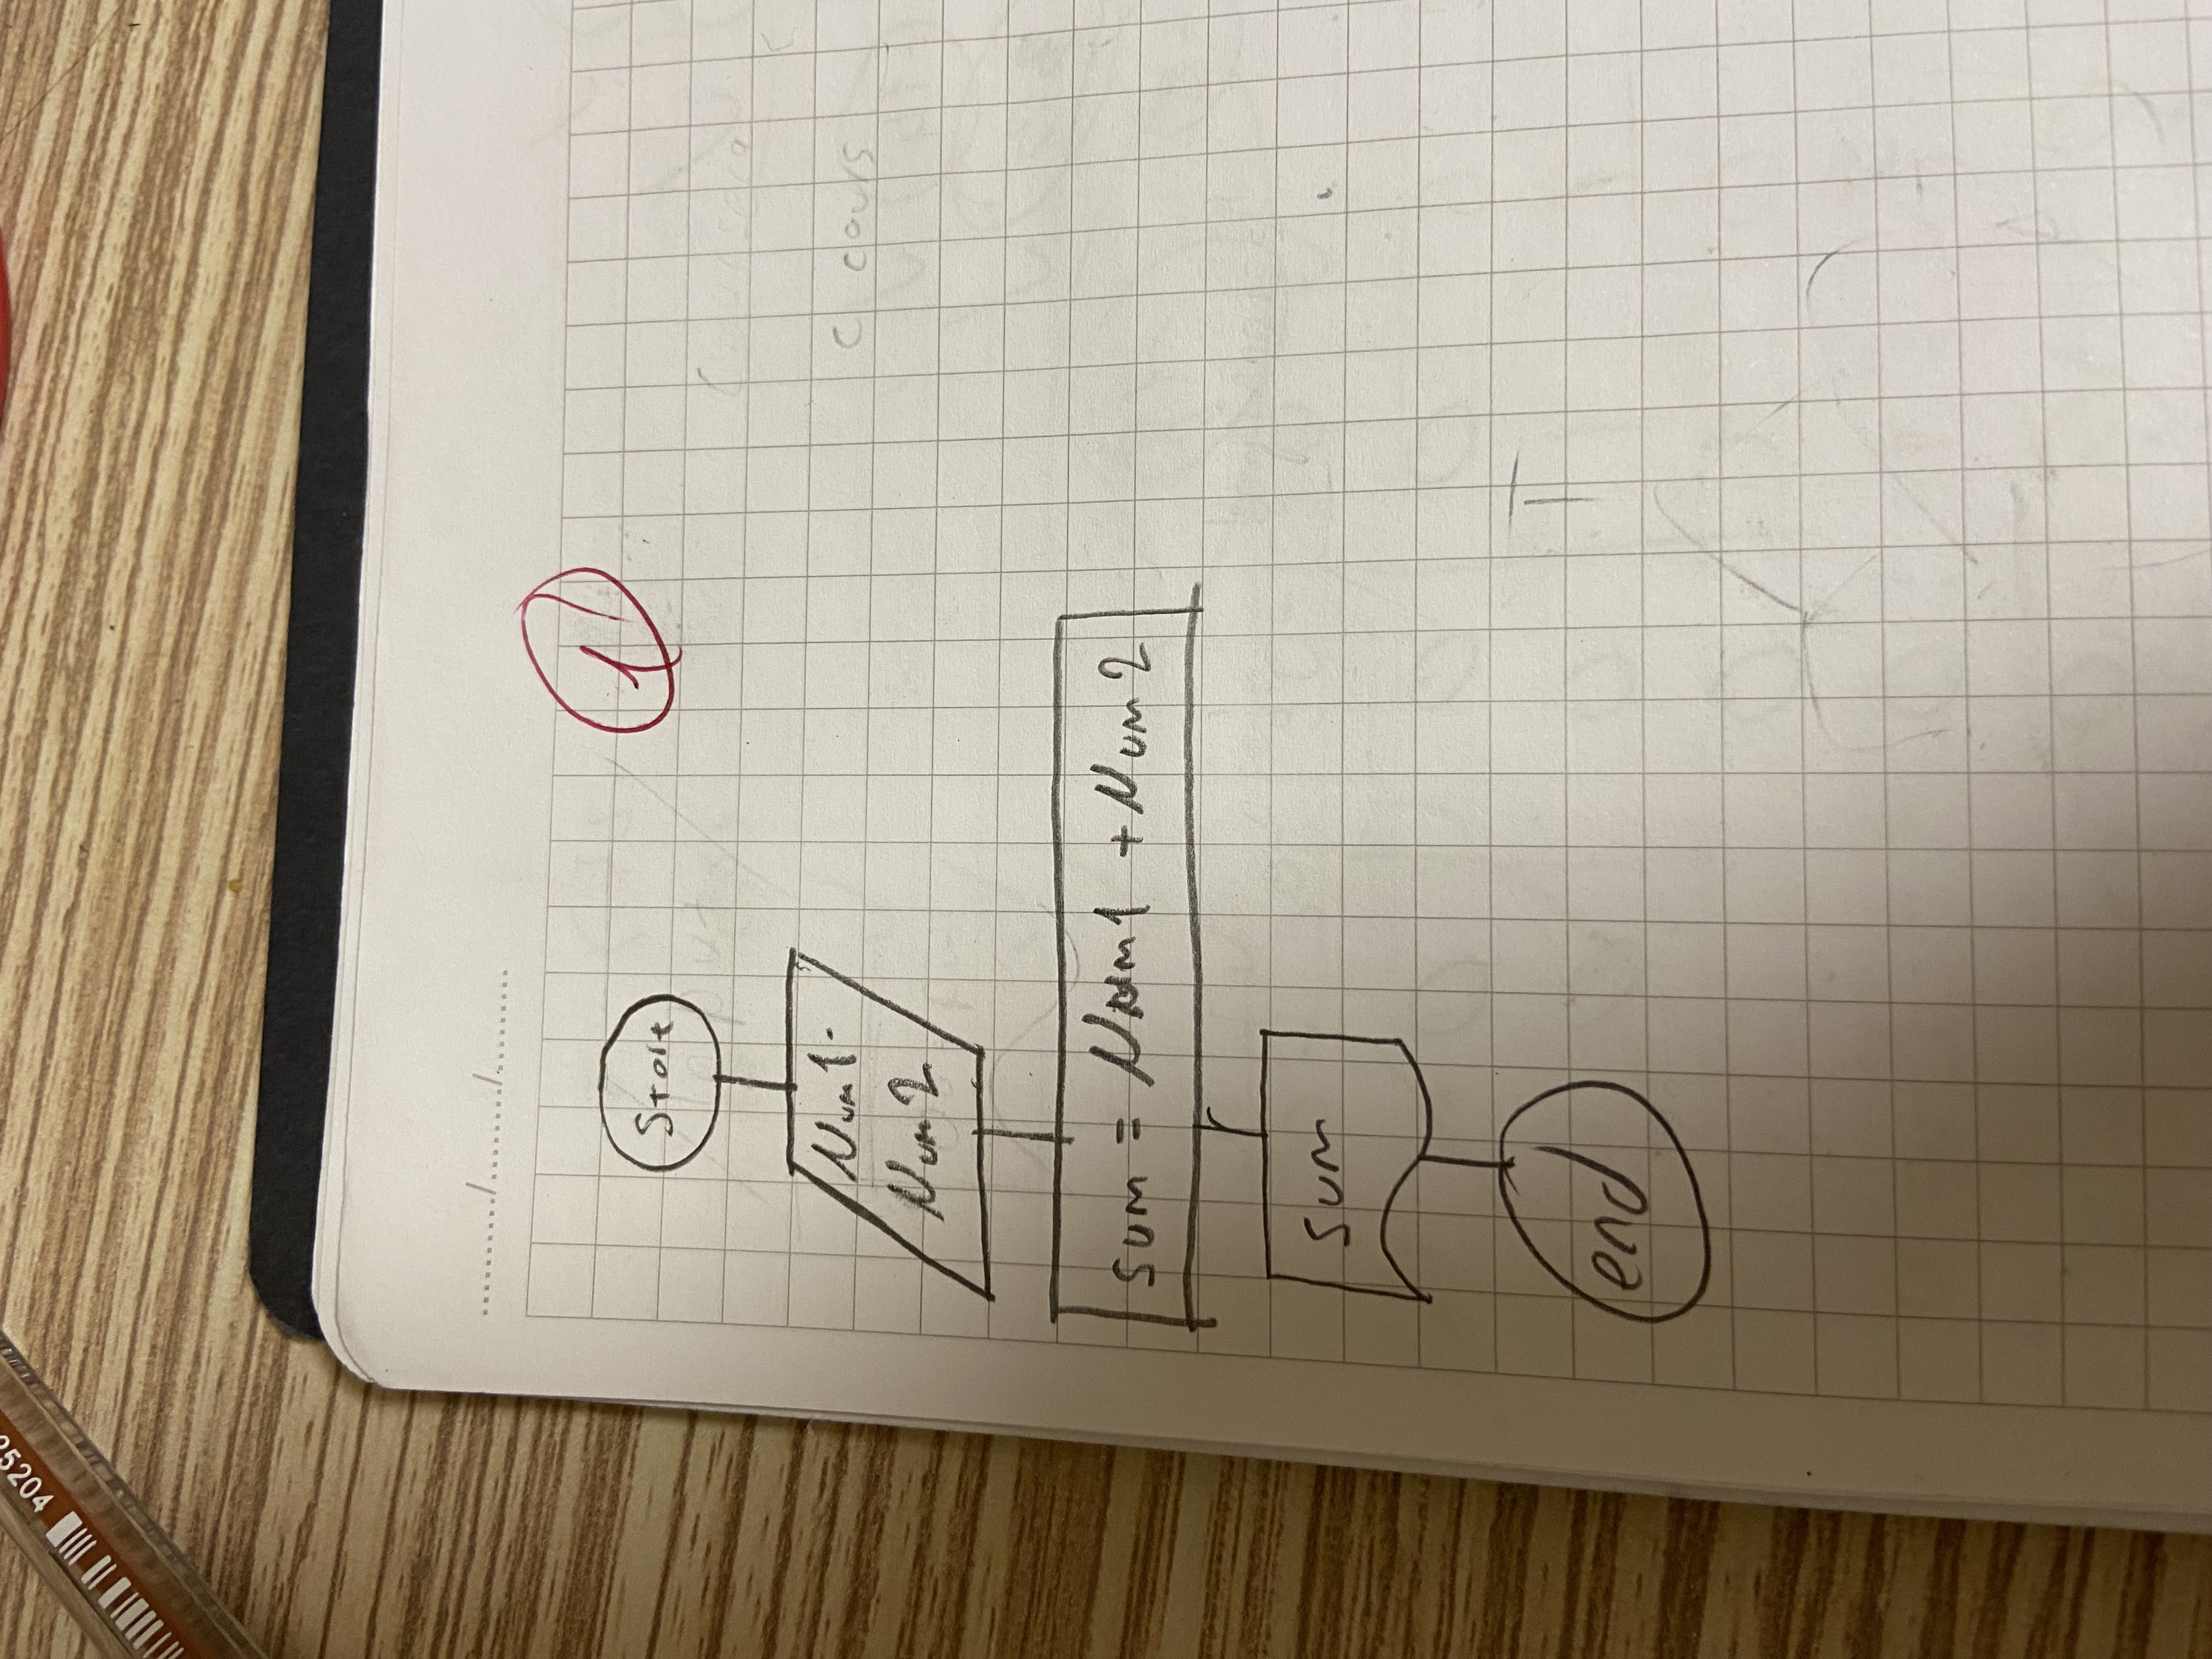 5204
1
Start
Num1
Num2
sum = Num1 + Num2
sum
end
T
c cours